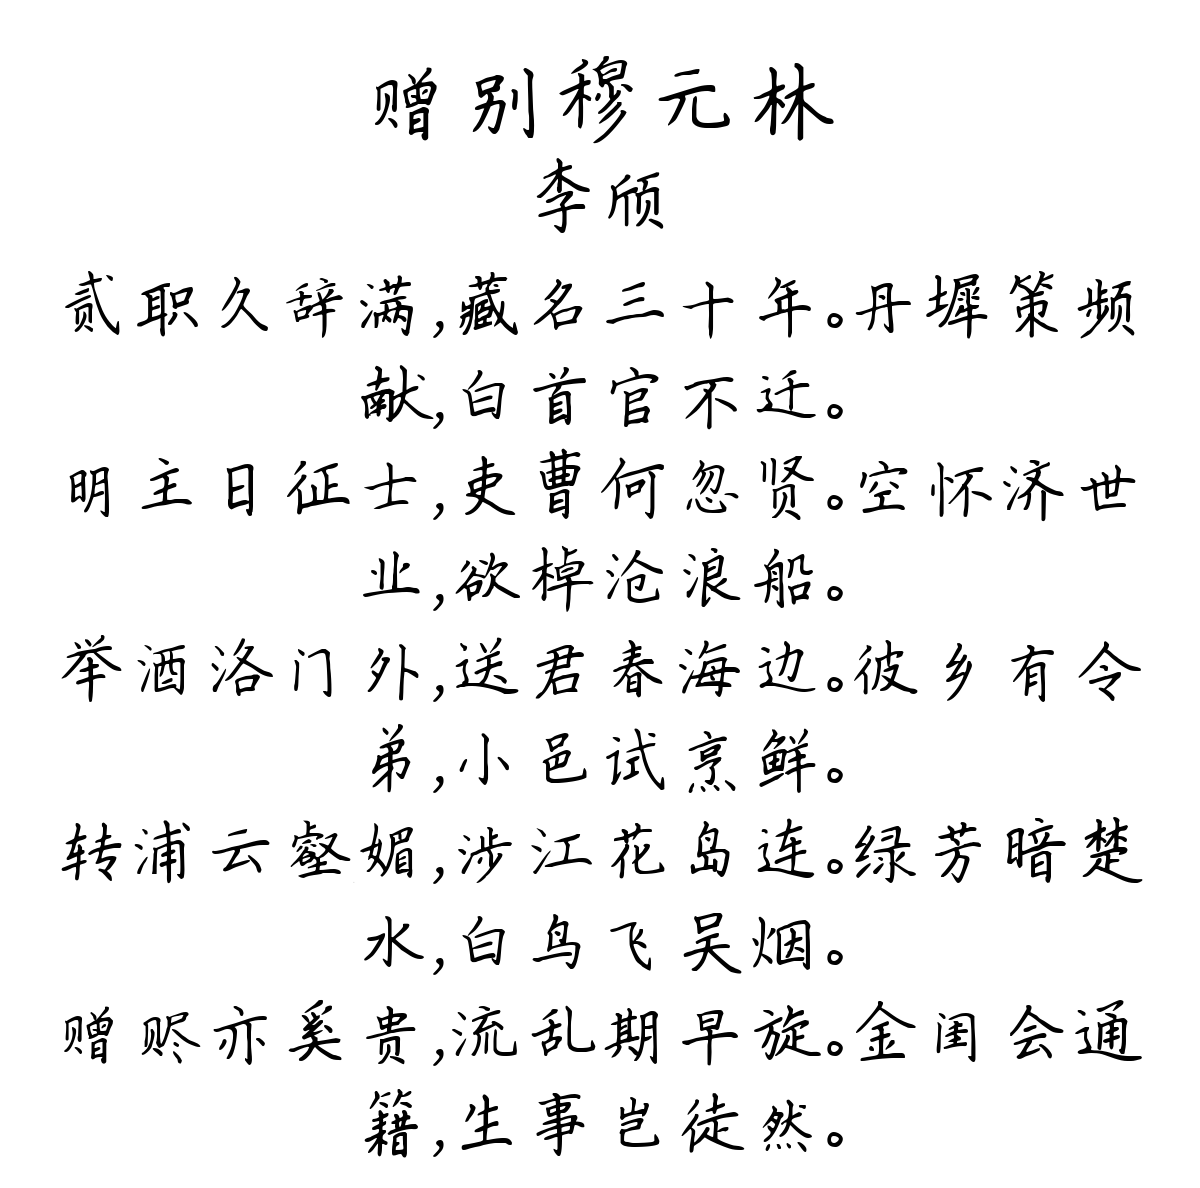 赠别穆元林
李颀
贰职久辞满,藏名三十年。丹墀策频
献,白首官不迁。
明主日征士,吏曹何忽贤。空怀济世
业,欲棹沧浪船。
举酒洛门外,送君春海边。彼乡有令
弟,小邑试烹鲜。
转浦云壑媚,涉江花岛连。绿芳暗楚
水,白鸟飞吴烟。
赠赆亦奚贵,流乱期早旋。金闺会通
籍,生事岂徒然。